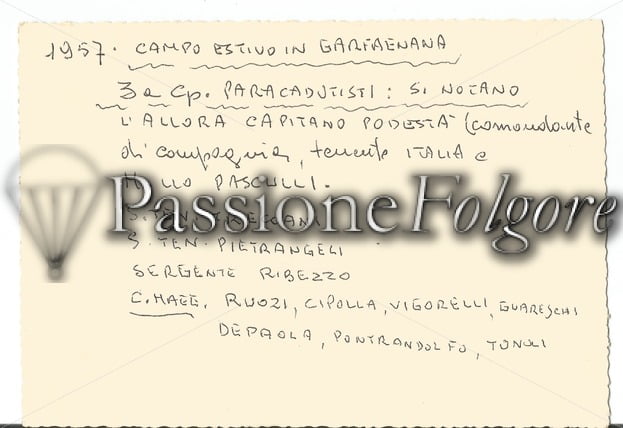 1957. CAMPO ESTIVO IN GARFAGNANA
3a Cp. PARACADUTISTI: SI NOTANO
L'ALLORA CAPITANO PODESTÀ (comandante
di compagnia, tenente ITALIA e
PASCULLI.
PassioneFolgore
S. TEN.
S. TEN. PIETRANGELI
SERGENTE RIBEZZO
C. MAGG. RUOZI, CIPOLLA, VIGORELLI, GUARESCHI
DEPAOLA, PONTRANDOLFO, TONOLI